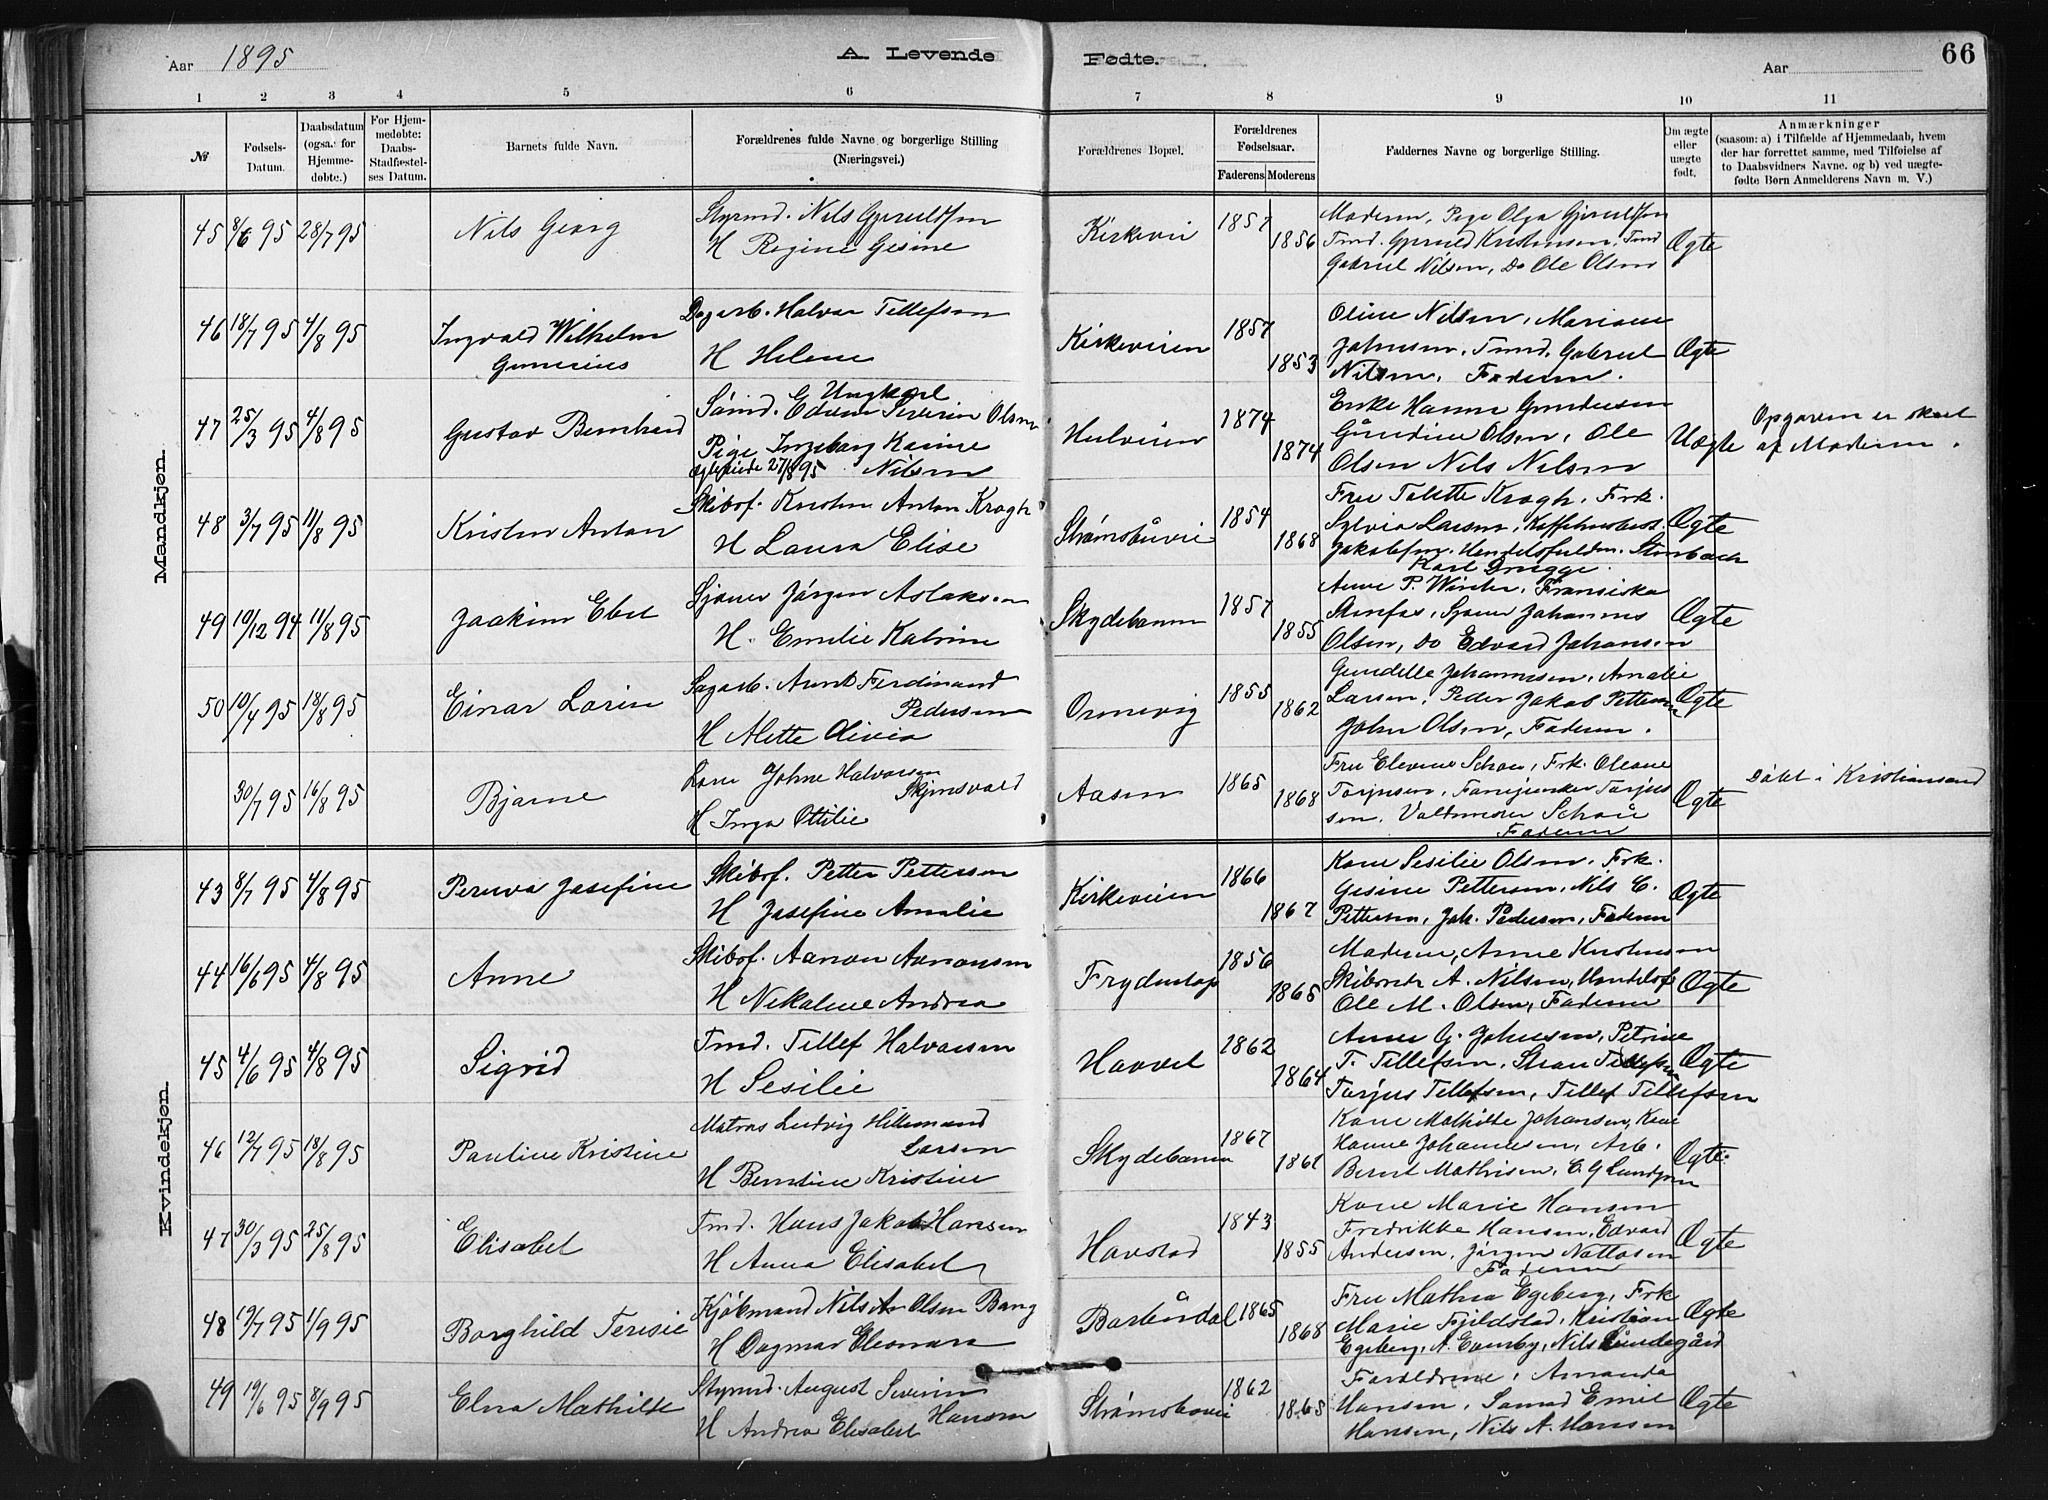 Aar 1895
A. Levende
Fødte.
Aar
66
1 2 3 4 5 6 7 8 9 10 11
№
Fødsels-
Datum.
Daabsdatum
(ogsaa for
Hjemme-
døbte.)
For Hjem-
medøbte:
Daabs-
Stadfæstel-
ses Datum.
Barnets fulde Navn.
Forældrenes fulde Navne og borgerlige Stilling
(Næringsvei.)
Forældrenes Bopæl.
Forældrenes
Fødselsaar.
Faderens Moderens
Faddernes Navne og borgerlige Stilling.
Om ægte
eller
uægte
født.
Anmærkninger
(saasom: a) i Tilfælde af Hjemmedaab, hvem
der har forrettet samme, med Tilføielse af
to Daabsvidners Navne, og b) ved uægte-
fødte Børn Anmelderens Navn m. V.)
Mandkjøn.
45 8/6 95 28/7 95
Nils Georg
Styrmd. Nils Gjeruldsen
H Regine Gesine
Kirkevei
1857
1856
Moderen, Pige Olga Gjeruldsen
Tmd. Gjeruld Kristensen, Tmd
Gabriel Nilsen, Do Ole Olsen
Ægte
46 18/7 95 4/8 95
Ingvald Wilhelm
Gunerius
Dagarb. Halvor Tellefsen
H Helene
Kirkeveien
1857
1853
Oline Nilsen, Mariane
Johnsen, Tmd. Gabriel
Nilsen, Faderen.
Ægte
47 25/3 95 4/8 95
Gustav Bernhard
Ungkarl
Sømd. Edvin Severin Olsen
Pige Ingeborg Karine
Nilsen
27/8 95
Hulveien
1874
1874
Enke Hanne Gundersen
Gundine Olsen, Ole
Olsen Nils Nilsen
Uægte
Opgaven er skeet
af Moderen.
48 3/7 95 11/8 95
Kristen Anton
Skibsf. Kristen Anton Krogh
H Laura Elise
Strømsbuvei
1854
1868
Fru Tolette Krogh, Frk.
Sylvia Larsen,
Jakobsen, Handelsfuldm. Stenbach
Karl Drugge.
Ægte
49 10/12 94 11/8 95
Joakim Ebel
Sjøm Jørgen Aslaksen
H. Emilie Katrine
Skydebanen
1857
1855
Anne P. Winter, Fransiska
Stenfas, Sjøm Johannes
Olsen, Do Edvard Johansen
Ægte
50 10/4 95 18/8 95
Einar Lorin
Sagarb. Arent Ferdinand
Pedersen
H Alette Olivia
Ormevig
1855
1862
Gundelle Johannesen, Amalie
Larsen, Peder Jakob Pettersen
John Olsen, Faderen.
Ægte
30/7 95 16/8 95
Bjarne
Johne Halvorsen
Skjønsvold
H Inga Ottilie
Aasen
1865
1868
Fru Elevine Schou, Frk. Oleane
Torjusen, Torjus
sen, Schou
Faderen
Ægte
Døbt i Kristiansand
Kvindekjøn.
43 8/7 95 4/8 95
Peruva Josefine
Skibsf. Petter Pettersen
H Josefine Amalie
Kirkeveien
1866
1867
Kone Sesilie Olsen, Frk.
Gesine Pettersen, Nils C.
Pettersen, Joh. Pedersen, Faderen
Ægte
44 16/6 95 4/8 95
Anne
Skibsf. Aanon Aanonsen
H Nikoline Andrea
Frydenstop
1856
1865
Moderen, Anne Kristensen
Skibsreder A. Nilsen, Handelsf
Ole M. Olsen, Faderen
Ægte
45 4/6 95 4/8 95
Sigrid
Tmd. Tellef Halvorsen
H Sesilie
Havvet
1862
1864
Anne G. Johnsen, Petrine
T. Tellefsen, Tellefsen
Torjus Tellefsen, Tellef Tellefsen
Ægte
46 12/7 95 18/8 95
Pauline Kristine
Matros Ludvig Hillemand
Larsen
H Berntine Kristine
Skydebanen
1867
1861
Kone Mathilde Johansen, Kone
Hanne Johannesen, Arb.
Bernt Mathisen, C. G Lundgren
Ægte.
47 30/3 95 25/8 95
Elisabet
Tmd. Hans Jakob Hansen
H Anna Elisabet
Havstad
1843
1855
Kone Marie Hansen
Fredrikke Hansen, Edvard
Andersen, Jørgen Nattosen
Faderen
Ægte
48 19/7 95 1/9 95
Borghild Terisie
Kjøbmand Nils A Olsen Bang
H Dagmar Eleonara
Barbudal
1865
1868
Fru Mathea Egeberg, Frk
Marie Fjeldstad, Kristian
Egeberg, A. Evensby, Nils Lundegård
Ægte
49 19/6 95 8/9 95
Elna Mathilde
Styrmd. August Severin
Hansen
H Andrea Elisabet
Strømsbovei
1862
1865
Forældrene, Amanda
Hansen, Sømd Emil
Hansen, Nils A. Hansen
Ægte